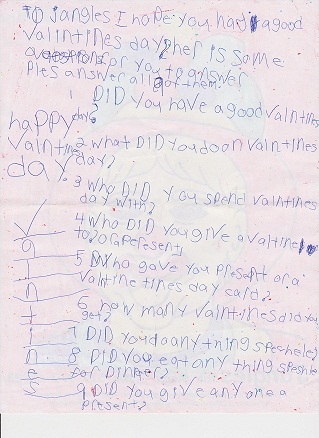 TO jangles I hope you had a good
valintines day? her is some
for you to answer
ples answer all of them.
1 DID you have a good valntines
day?
happy
valntines
day
2 what DID you do on valntines
day?
3 who DID you spend valintines
day with?
4 who DID you give a valtine
to? Or a present
5 who gave you present or a
valtine times day card?
6 how many valintines did you
get?
7 DID you do any thing speshele?
8 DID you eat any thing speshle
for DINNer?
9 DID you give any one a
present?
V
a
l
n
t
i
n
e
s